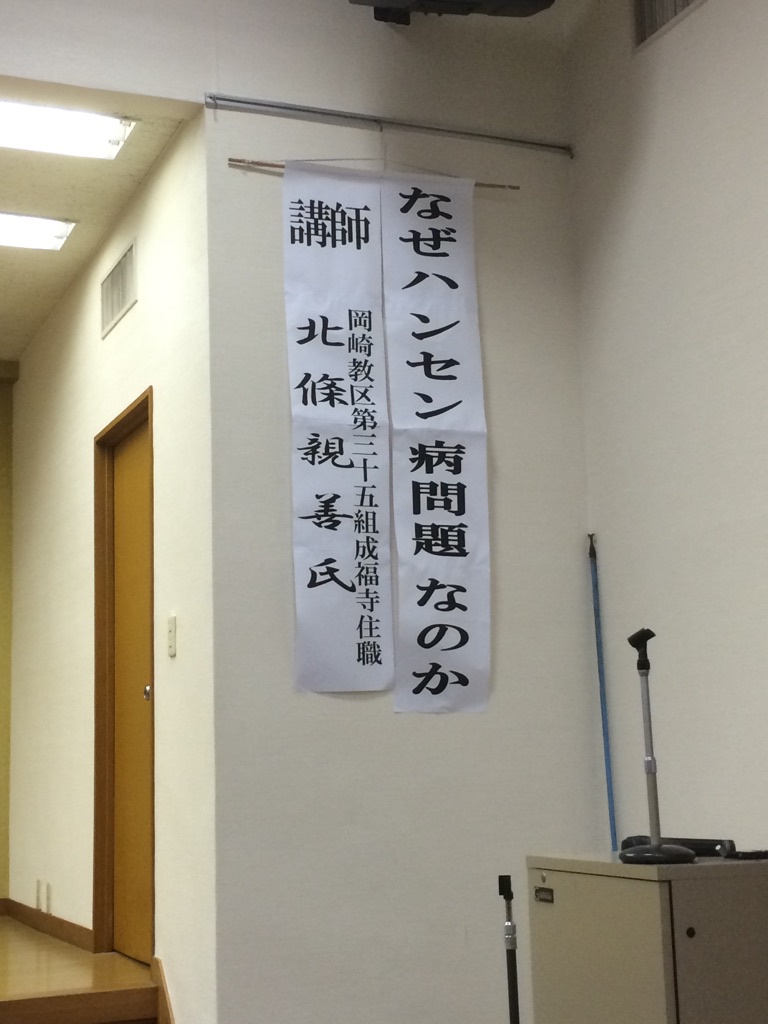 なぜハンセン病問題なのか
講師
岡崎教区第三十五組成福寺住職
北條親善氏